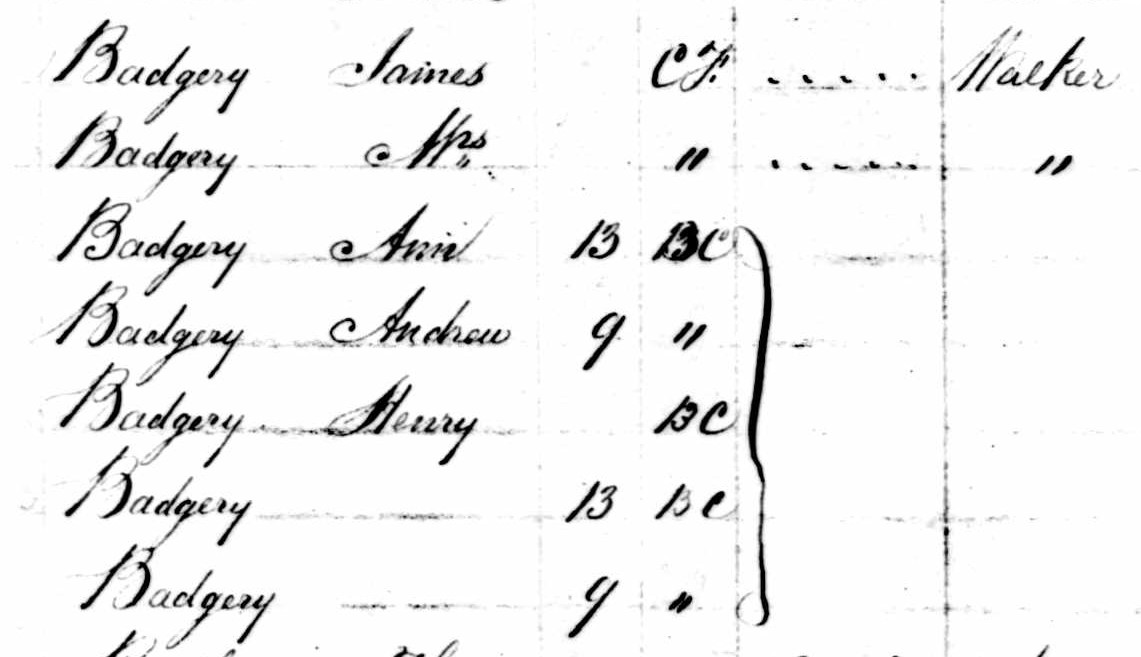 Badgery James C.F. ...... Walker
Badgery Mrs " ...... "
Badgery Ann 13 BC
Badgery Andrew 9 "
Badgery Henry BC
Badgery 13 BC
Badgery 9 "